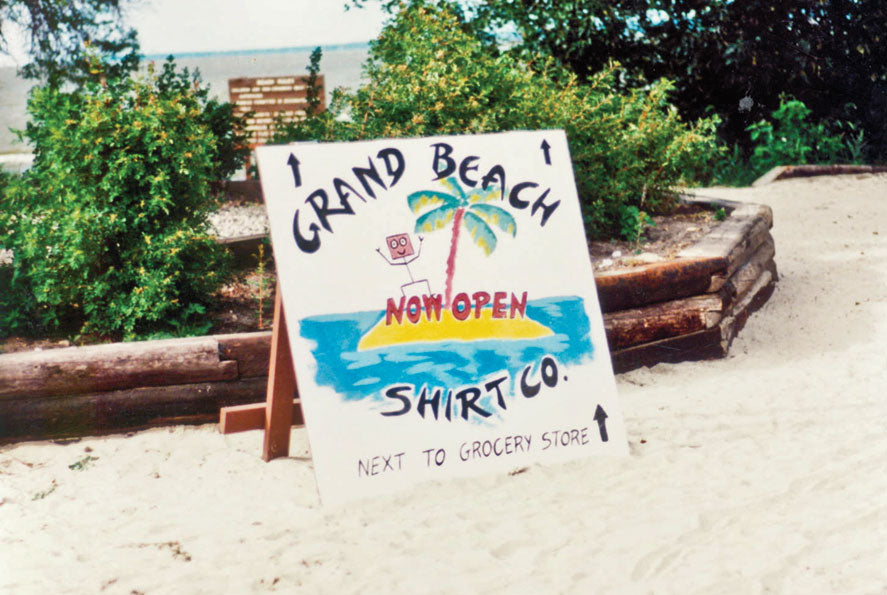 GRAND BEACH
NOW OPEN
SHIRT CO.
NEXT TO GROCERY STORE